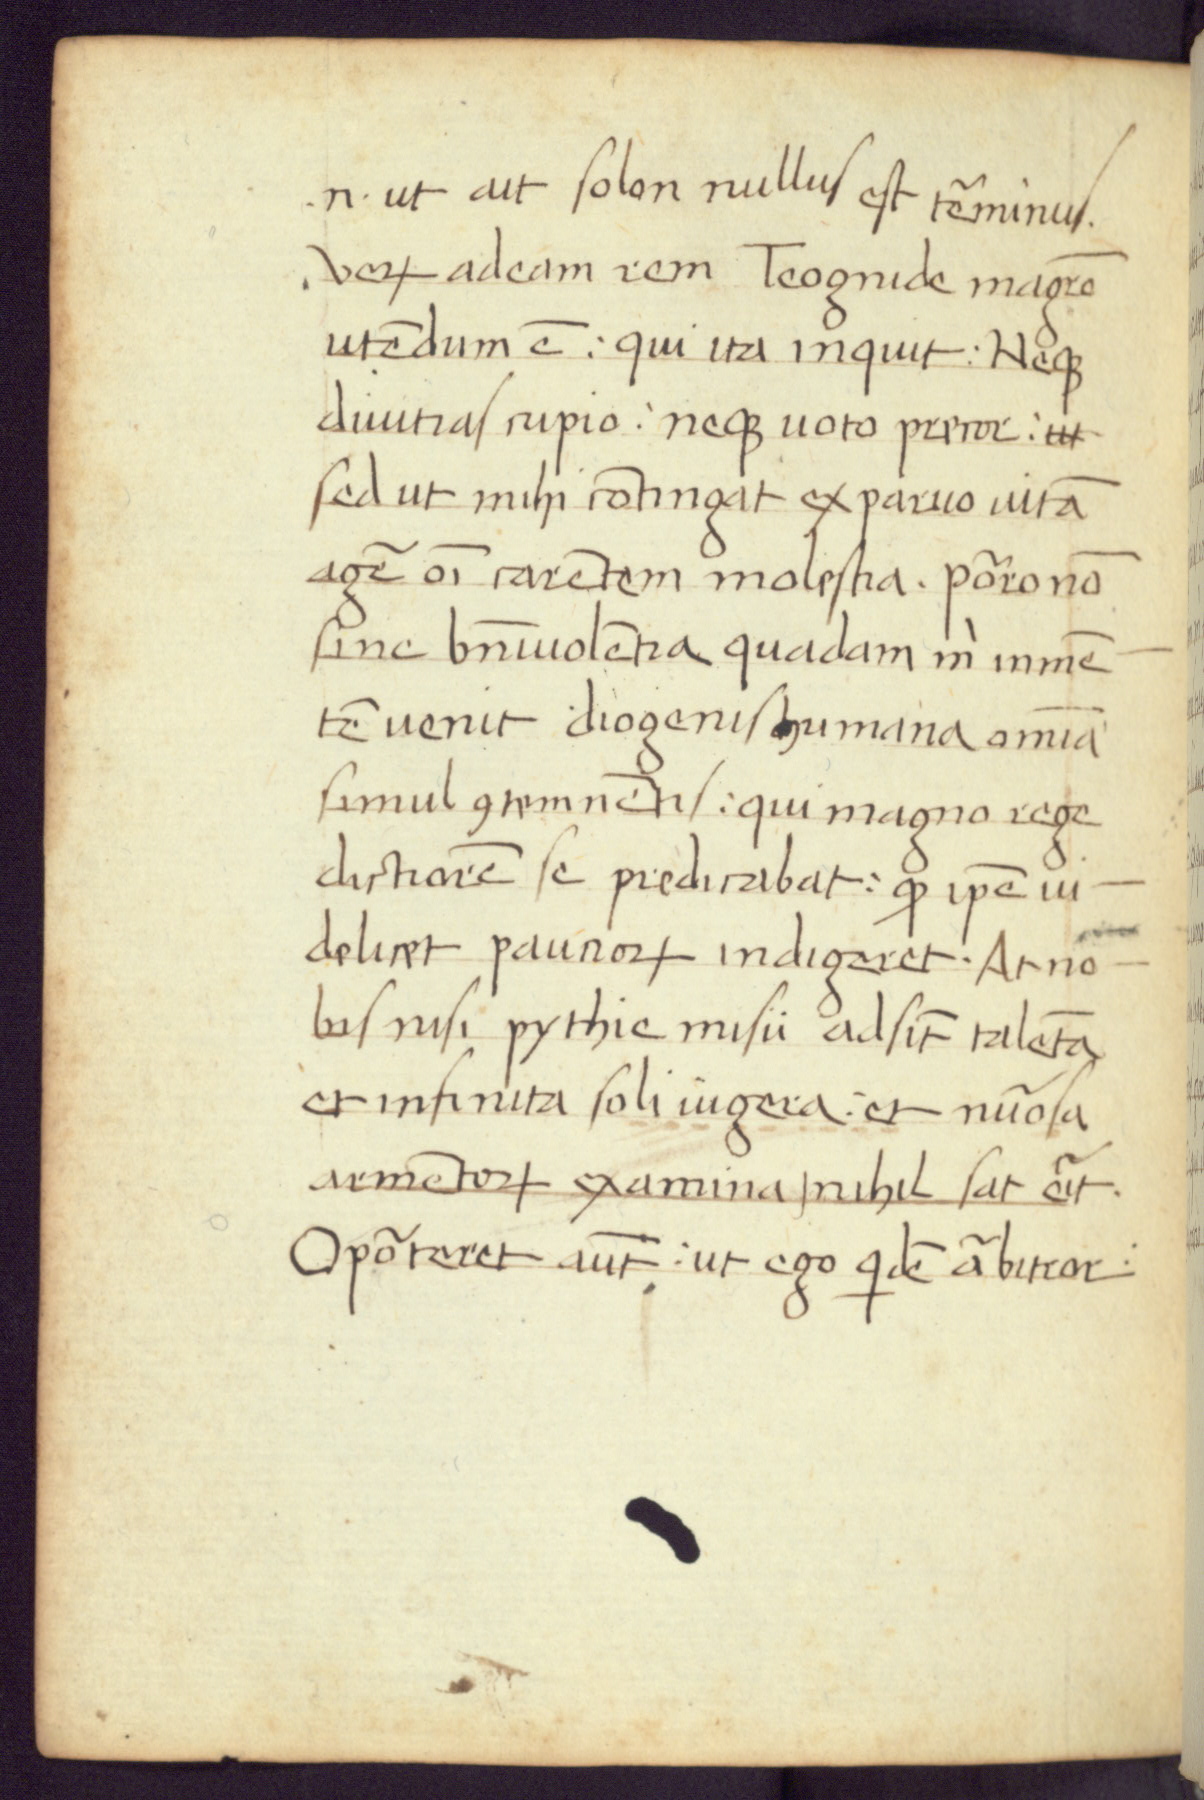 .n. ut ait solon nullus est tẽminus.
Veꝝ adeam rem Teognide magr̃o
utēdum ē : qui ita inquit : Neqꝫ
diuitias cupio : neqꝫ uoto precor : ut
sed ut mihi cōtingat ex paruo uitā
agẽ oī carētem molestia . põro nō
sine bn̄iuolētia quadam m̀ inmē-
tē uenit diogenis humana om̄ia
simul ꝯtemnētis : qui magno rege
dictiorē se predicabat : ꝙ ip̄e ui-
delicet paucioꝝ indigeret . At no-
bis nisi pythie misii adsīt talēta
et infinita soli iugera : et nũosa
armētoꝝ examina nihil sat ẽit .
Opõteret aut̄ : ut ego qdē ãbitror :